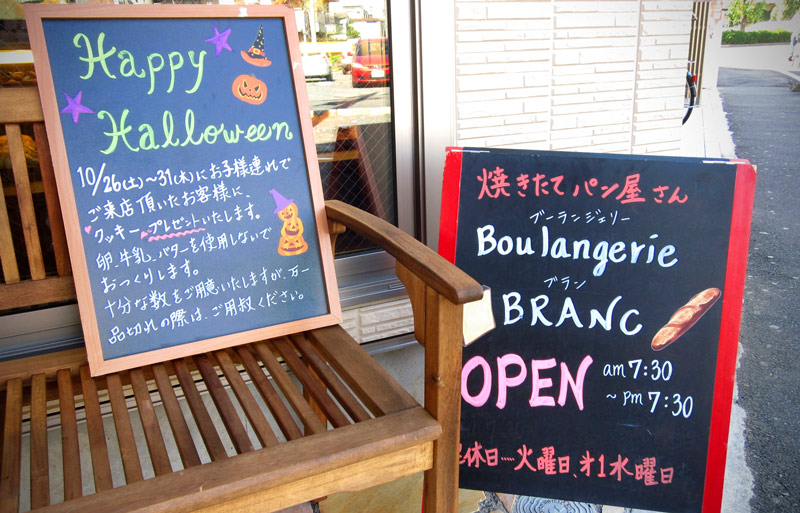 Happy
Halloween
10/26(土)〜31(木)にお子様連れで
ご来店頂いたお客様に、
クッキープレゼントいたします。
卵、牛乳、バターを使用しないで
おつくりします。
十分な数をご用意いたしますが、万一
品切れの際は、ご用赦ください。
焼きたてパン屋さん
ブーランジェリー
Boulangerie
ブラン
BRANC
OPEN
am 7:30
〜 pm 7:30
定休日……火曜日、才1水曜日